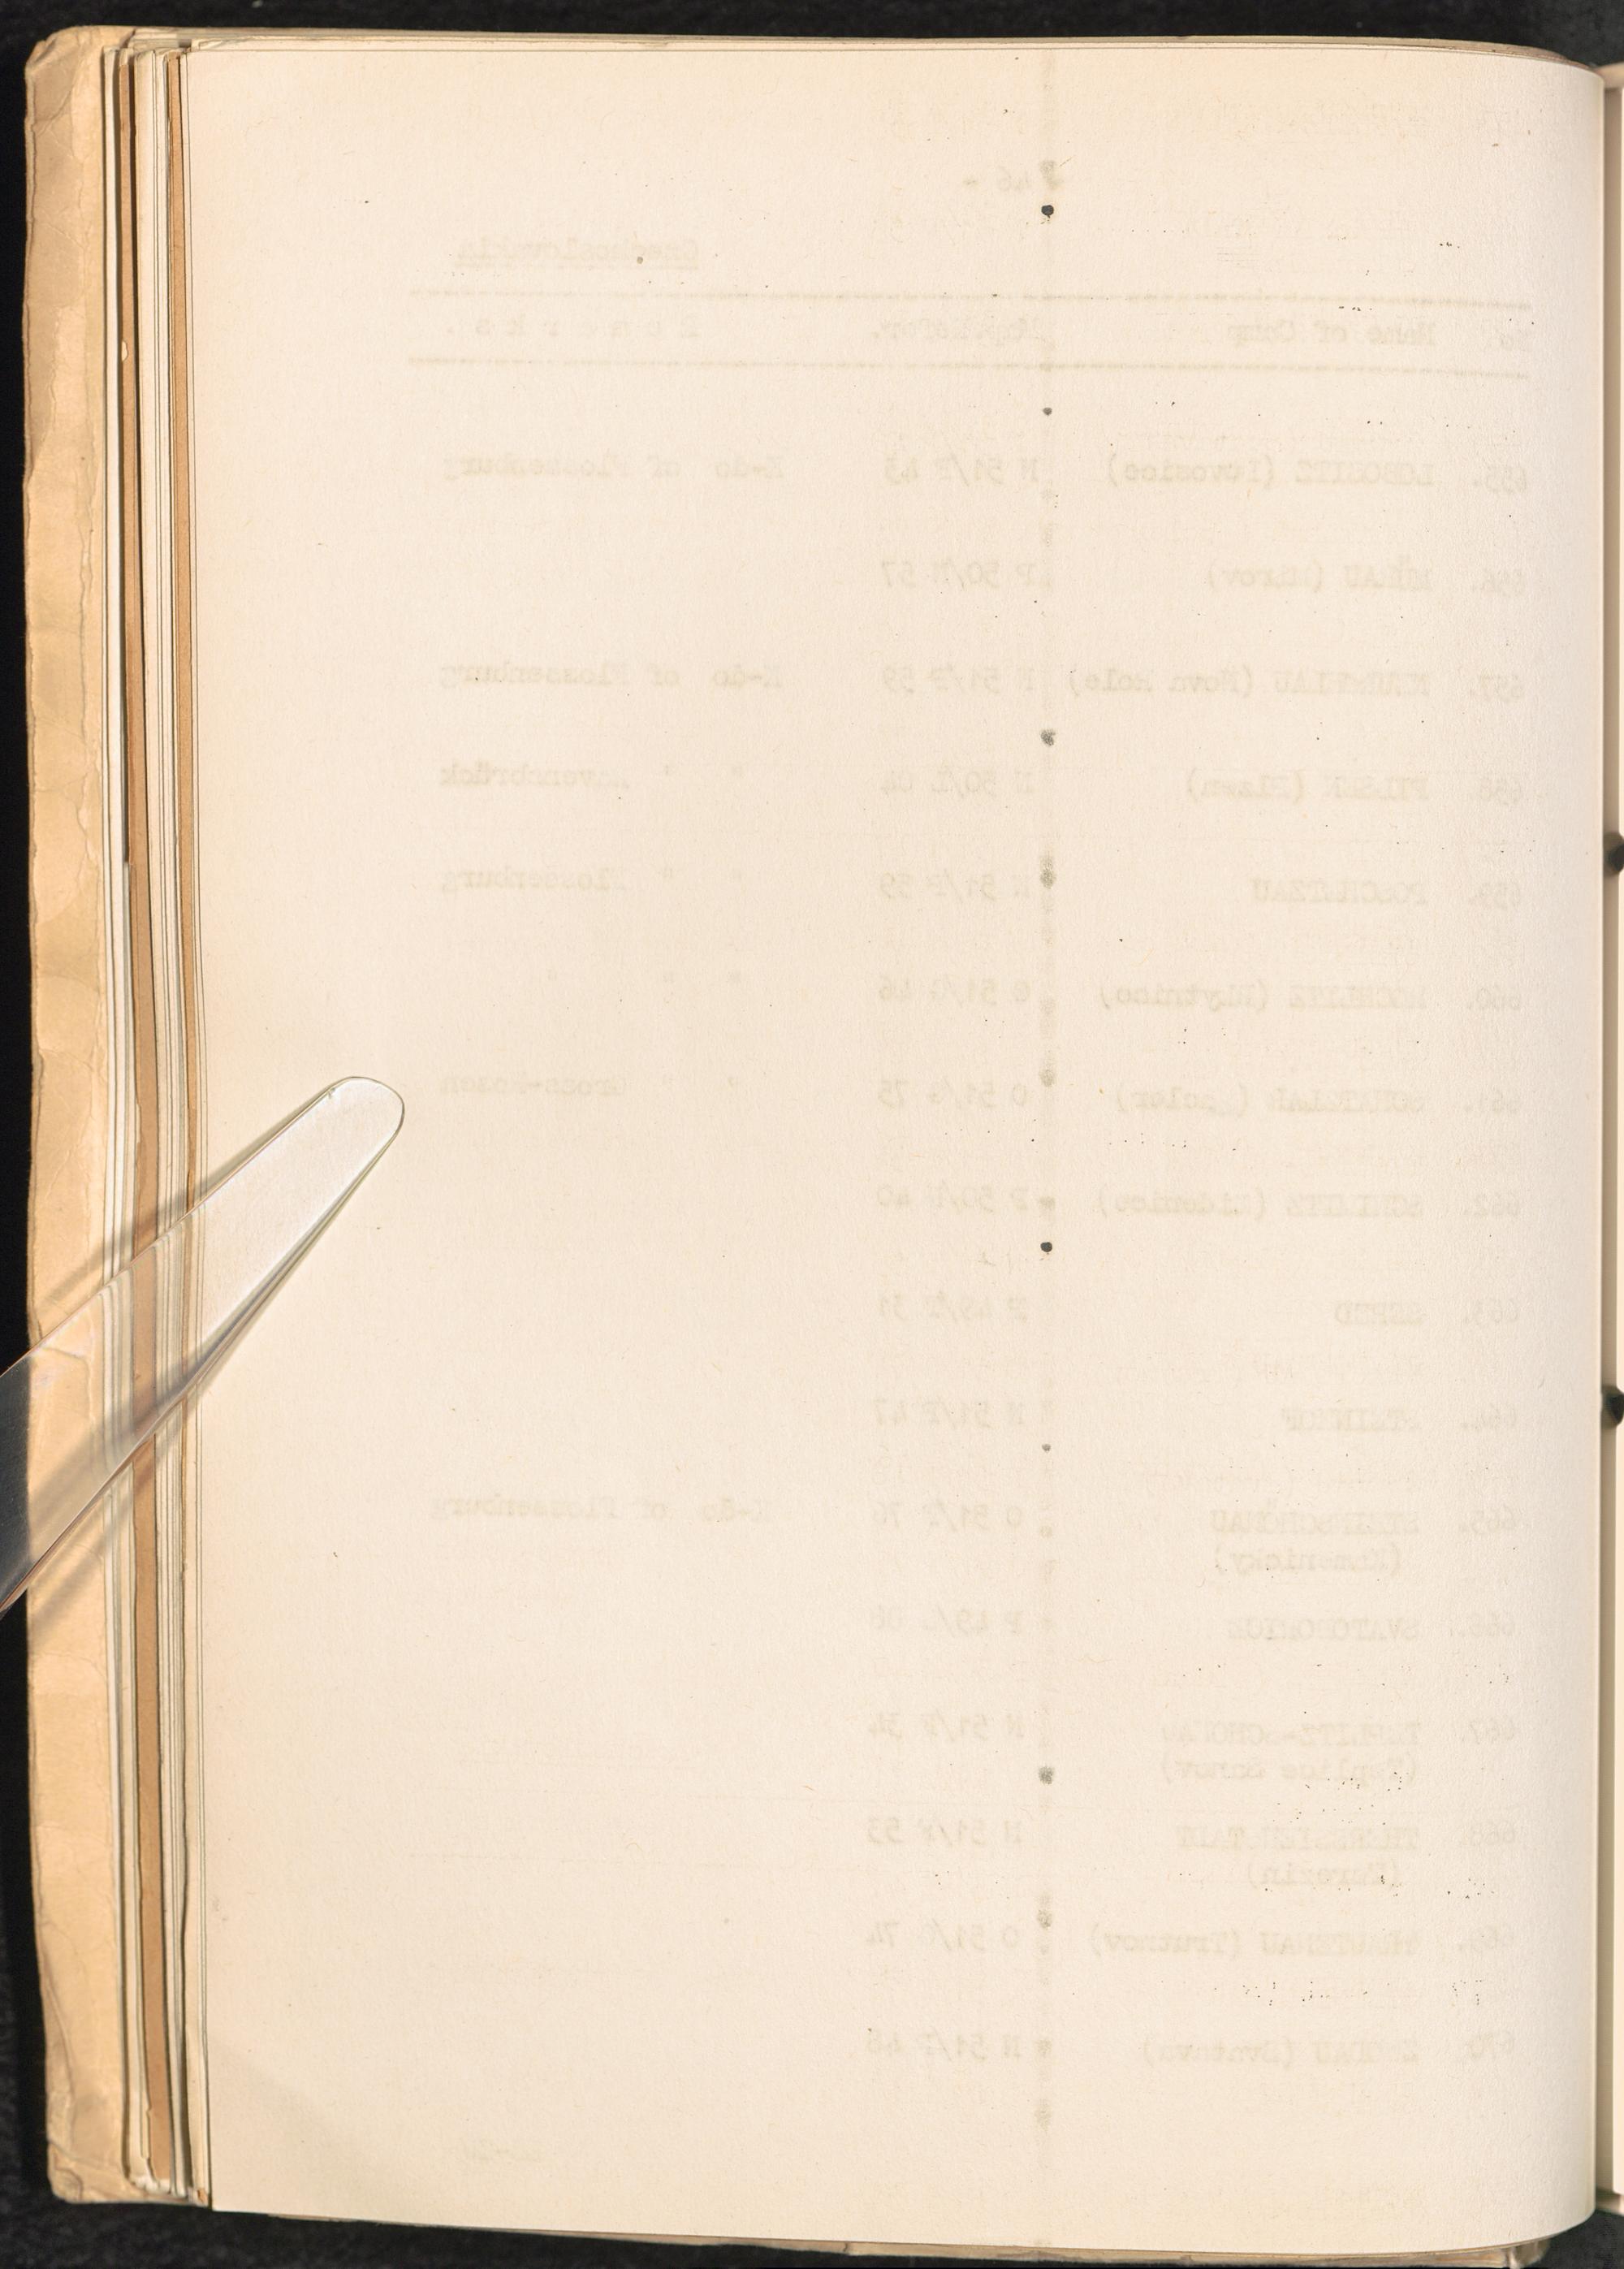 46 -
Czechoslovakia
Name of Camp Map Refer. R e m a r k s .
655. LOBOSITZ (Lovosice) N 51/F 43 K-do of Flossenburg
656. (Mirov) P 50/M 57
657. NEUROHLAU (Nova Role) N 51/F 59 K-do of Flossenburg
658. PILSEN (Plzen) N 50/L 04 " " Ravensbrück
659. N 51/F 59 " " Flossenburg
660. ROCHLITZ O 51/G 46 " " "
661. SCHATZLAR O 51/G 75 " " Gross-Rosen
662. (Zidenice) P 50/ 40
663. SERED P 49/T 31
664. N 51/F 47
665. STEINSCHÖNAU O 51/F 76 K-do of Flossenburg
(Kamenicky)
666. SVATOBORICE P 49/ 08
667. TEPLITZ-SCHONAU N 51/F 34
(Teplice Sanov)
668. THERESIENSTADT N 51/F 53
(Terezin)
669. TRAUTENAU (Trutnov) O 51/G 74
670. ZWODAU (Svatava) N 51/F 48